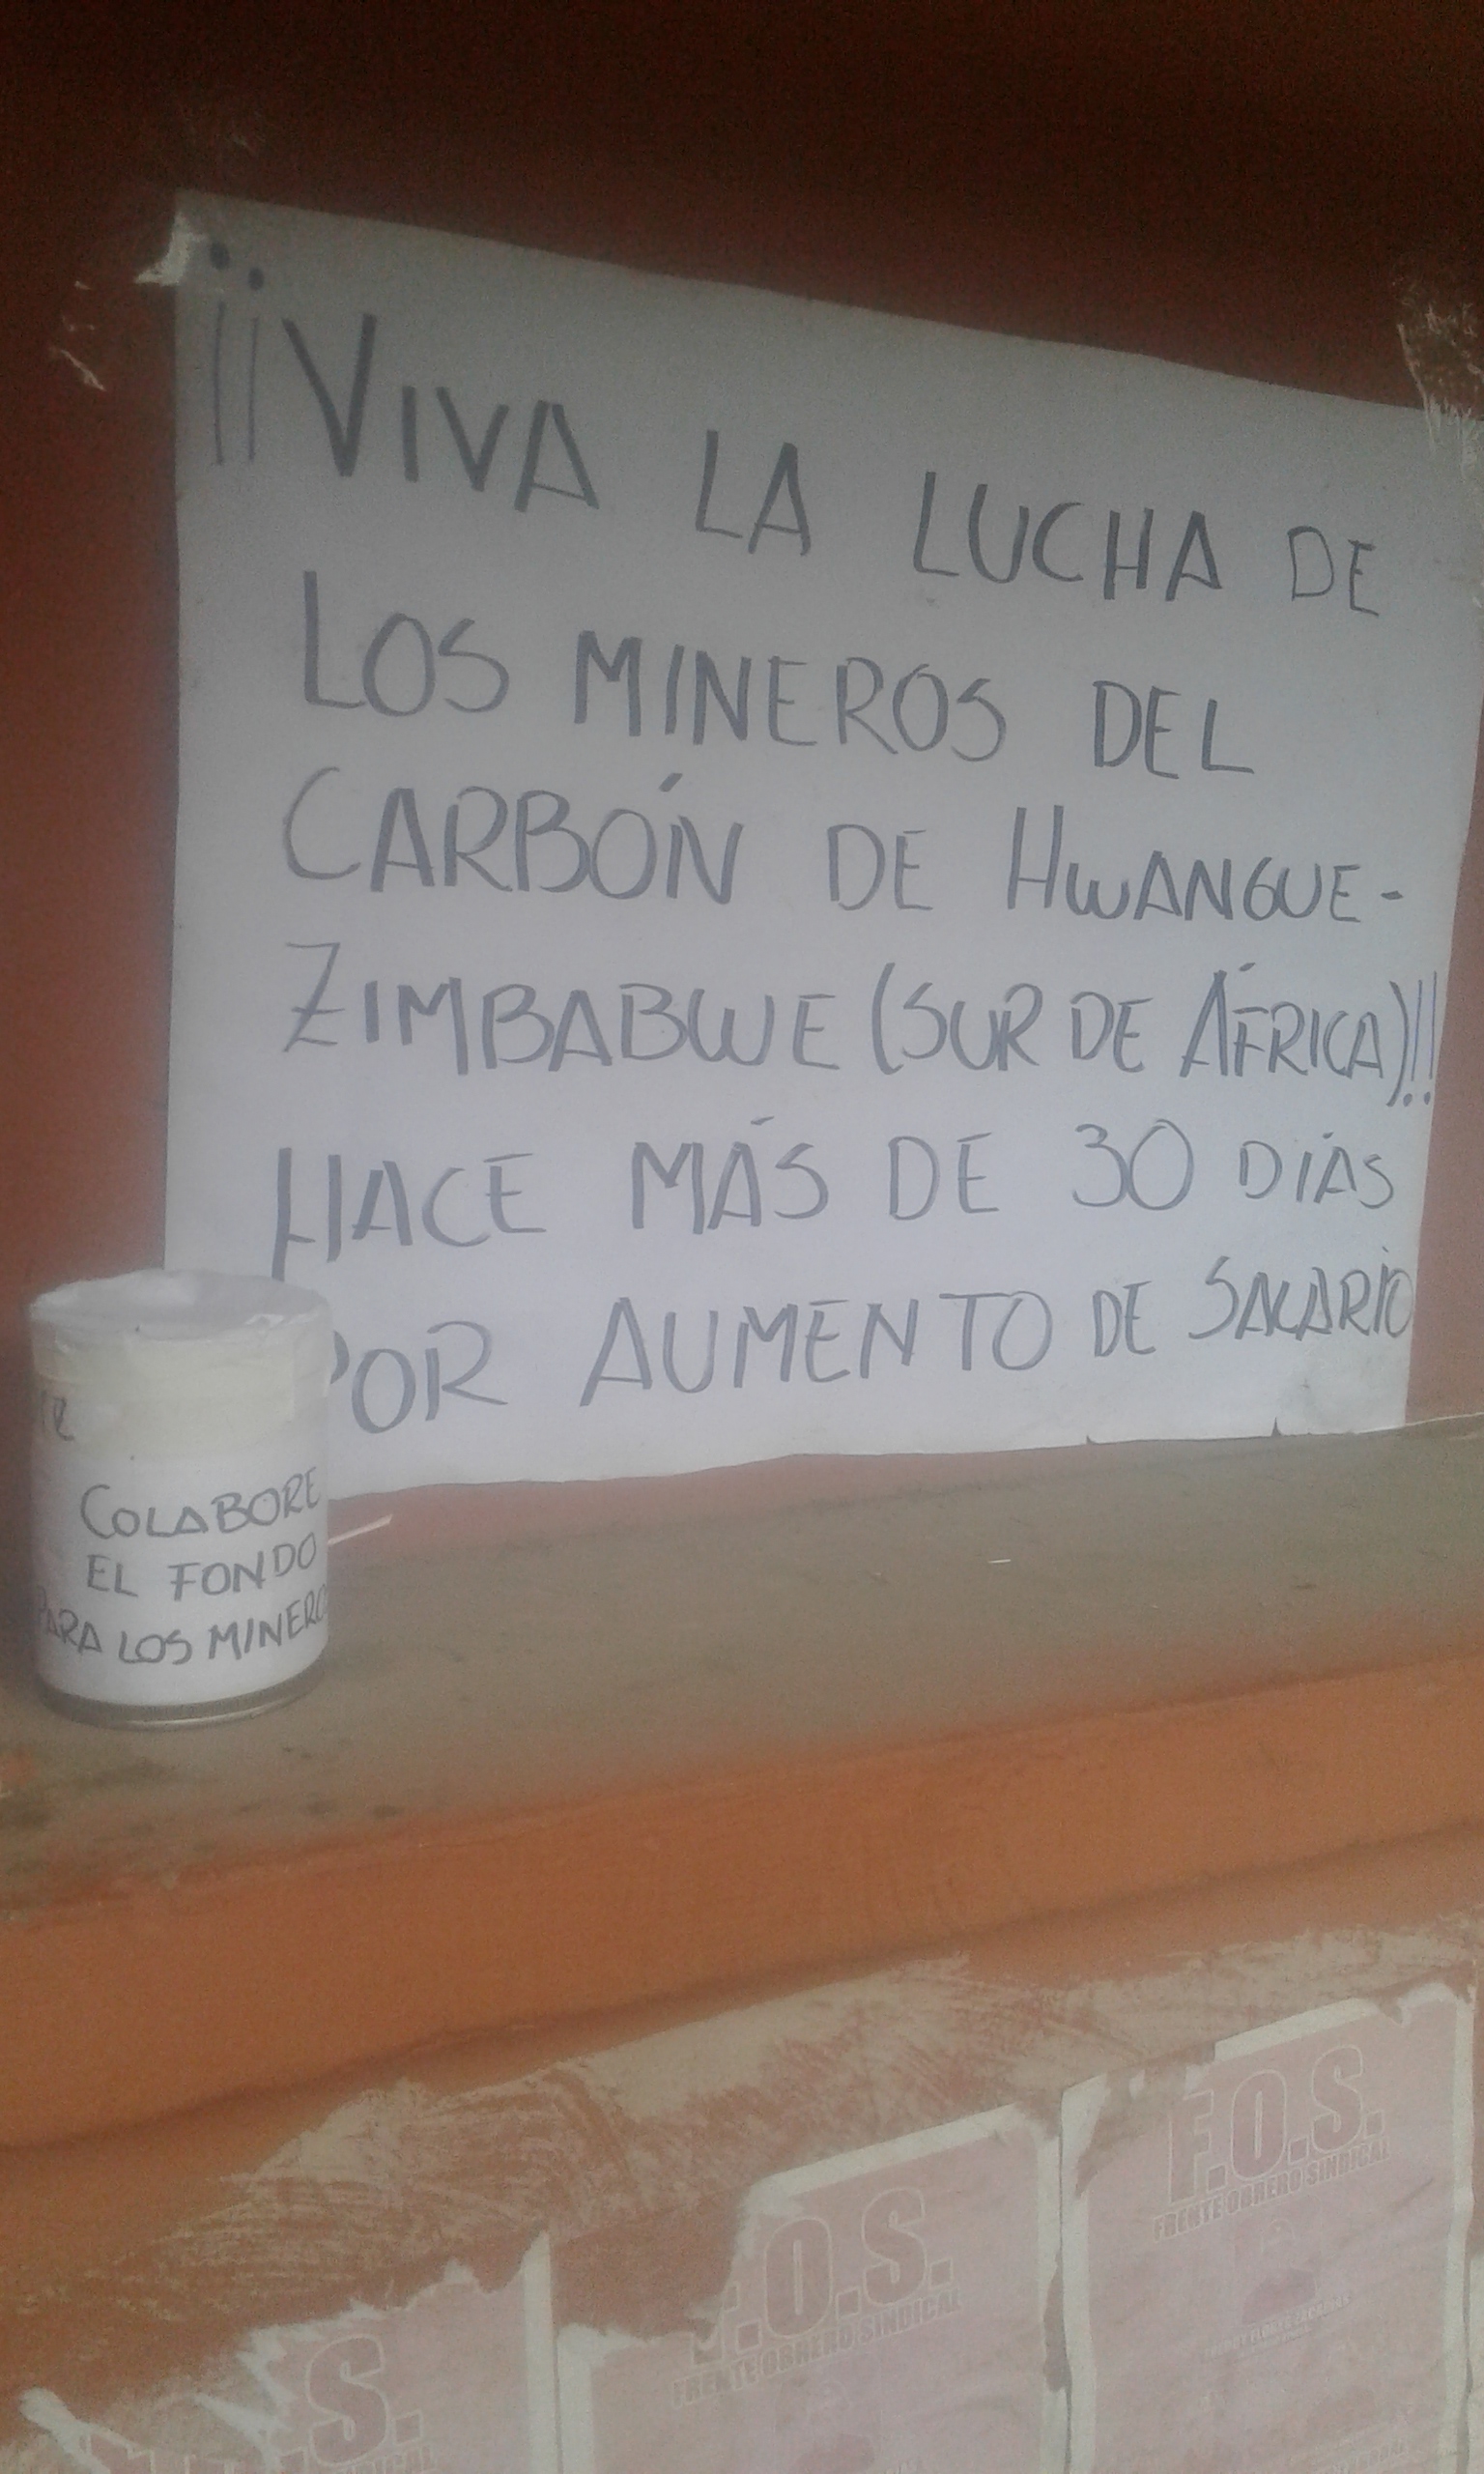 ¡¡VIVA LA LUCHA DE
LOS MINEROS DEL
CARBÓN DE HWANGUE-
ZIMBABWE (SUR DE ÁFRICA)!!
HACE MÁS DE 30 DÍAS
POR AUMENTO DE SALARIO
COLABORE
EL FONDO
PARA LOS MINEROS
F.O.S.
FRENTE OBRERO SINDICAL
F.O.S.
FRENTE OBRERO SINDICAL
S.